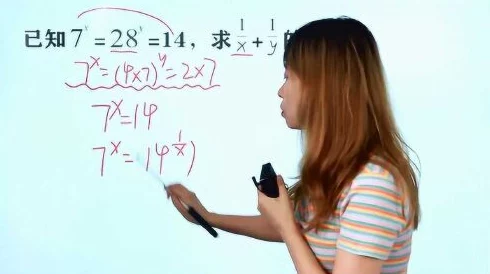 已知7ˣ=28ʸ=14，求1/x+1/y
7ˣ=(4×7)ʸ=2×7
7ˣ=14
7ˣ=14^(1/x))